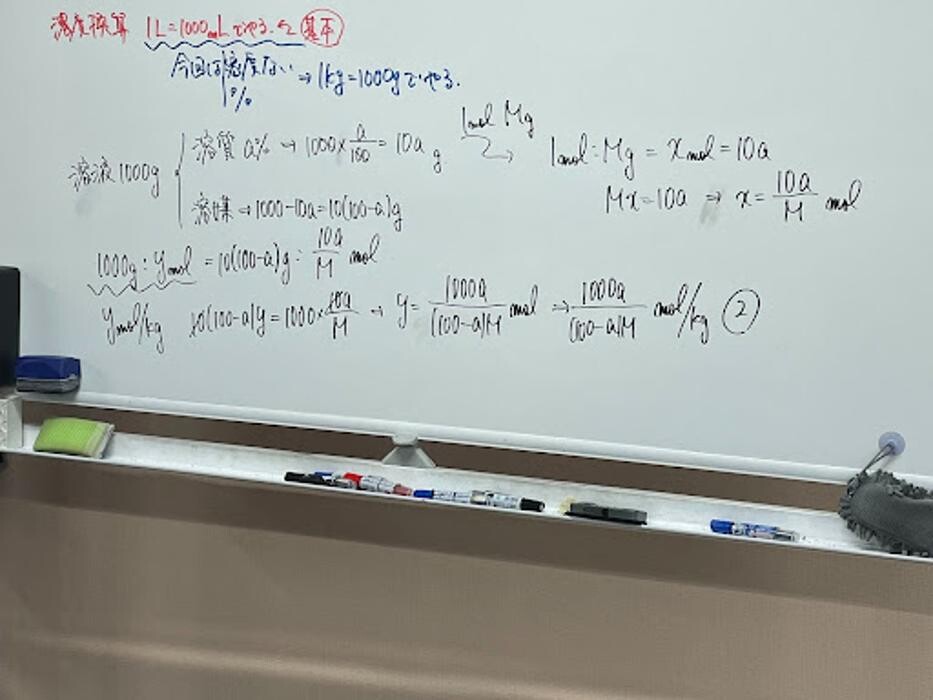 濃度換算 1L=1000mLでやる。←基本
今回は密度ない→1kg=1000gでやる。
%
溶液1000g
溶質 a% → 1000×a/100=10a g
1mol Mg
1mol:Mg = xmol=10a
溶媒→1000-10a=10(100-a)g
Mx=10a ⇒ x=10a/M mol
1000g:ymol = 10(100-a)g:10a/M mol
ymol/kg 10(100-a)y=1000×10a/M → y=1000a/(100-a)M mol ⇒ 1000a/(100-a)M mol/kg ②